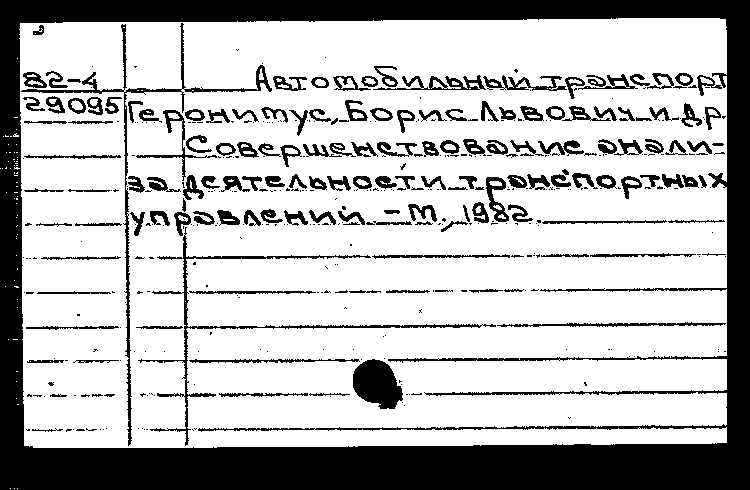 82-4 Автомобильный транспорт
29095 Геронимус, Борис Львович и др
Совершенствование анали-
за деятельности транспортных
управлений - М., 1982.